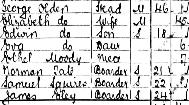 George Olden Head M 46
Elizabeth do Wife M 46
Edwin do Son S 18
do Daur 6
Ethel Moody Niece 7
Norman Tate Boarder S 21
Samuel Squires Boarder S 22
James Boarder S 24